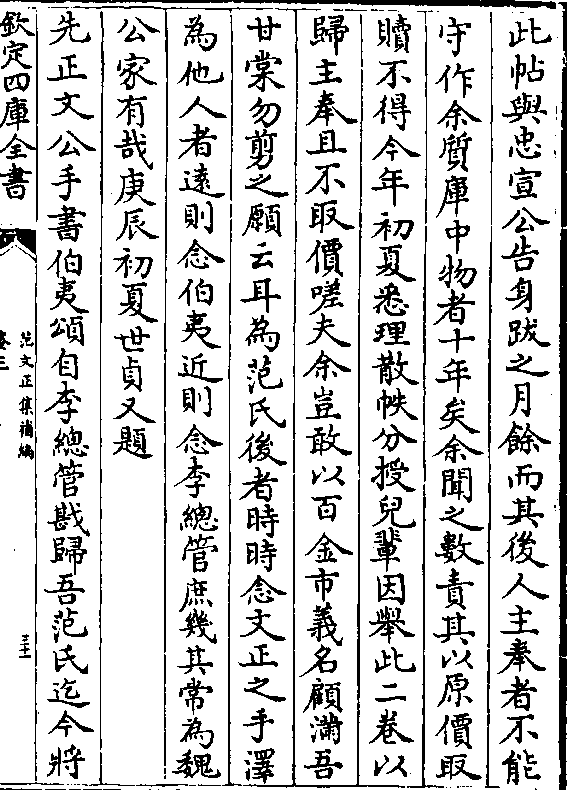 此帖與忠宣公告身跋之月餘而其後人主奉者不能
守作余質庫中物者十年矣余聞之數責其以原價取
贖不得今年初夏悉理散帙分授兒輩因舉此二卷以
歸主奉且不取價嗟夫余豈敢以百金市義名顧滿吾
甘棠勿剪之願云耳為范氏後者時時念文正之手澤
為他人者遠則念伯夷近則念李總管庶幾其常為魏
公家有哉庚辰初夏世貞又題
先正文公手書伯夷頌自李總管戡歸吾范氏迄今將
欽定四庫全書
范文正集補編
卷三
三十一